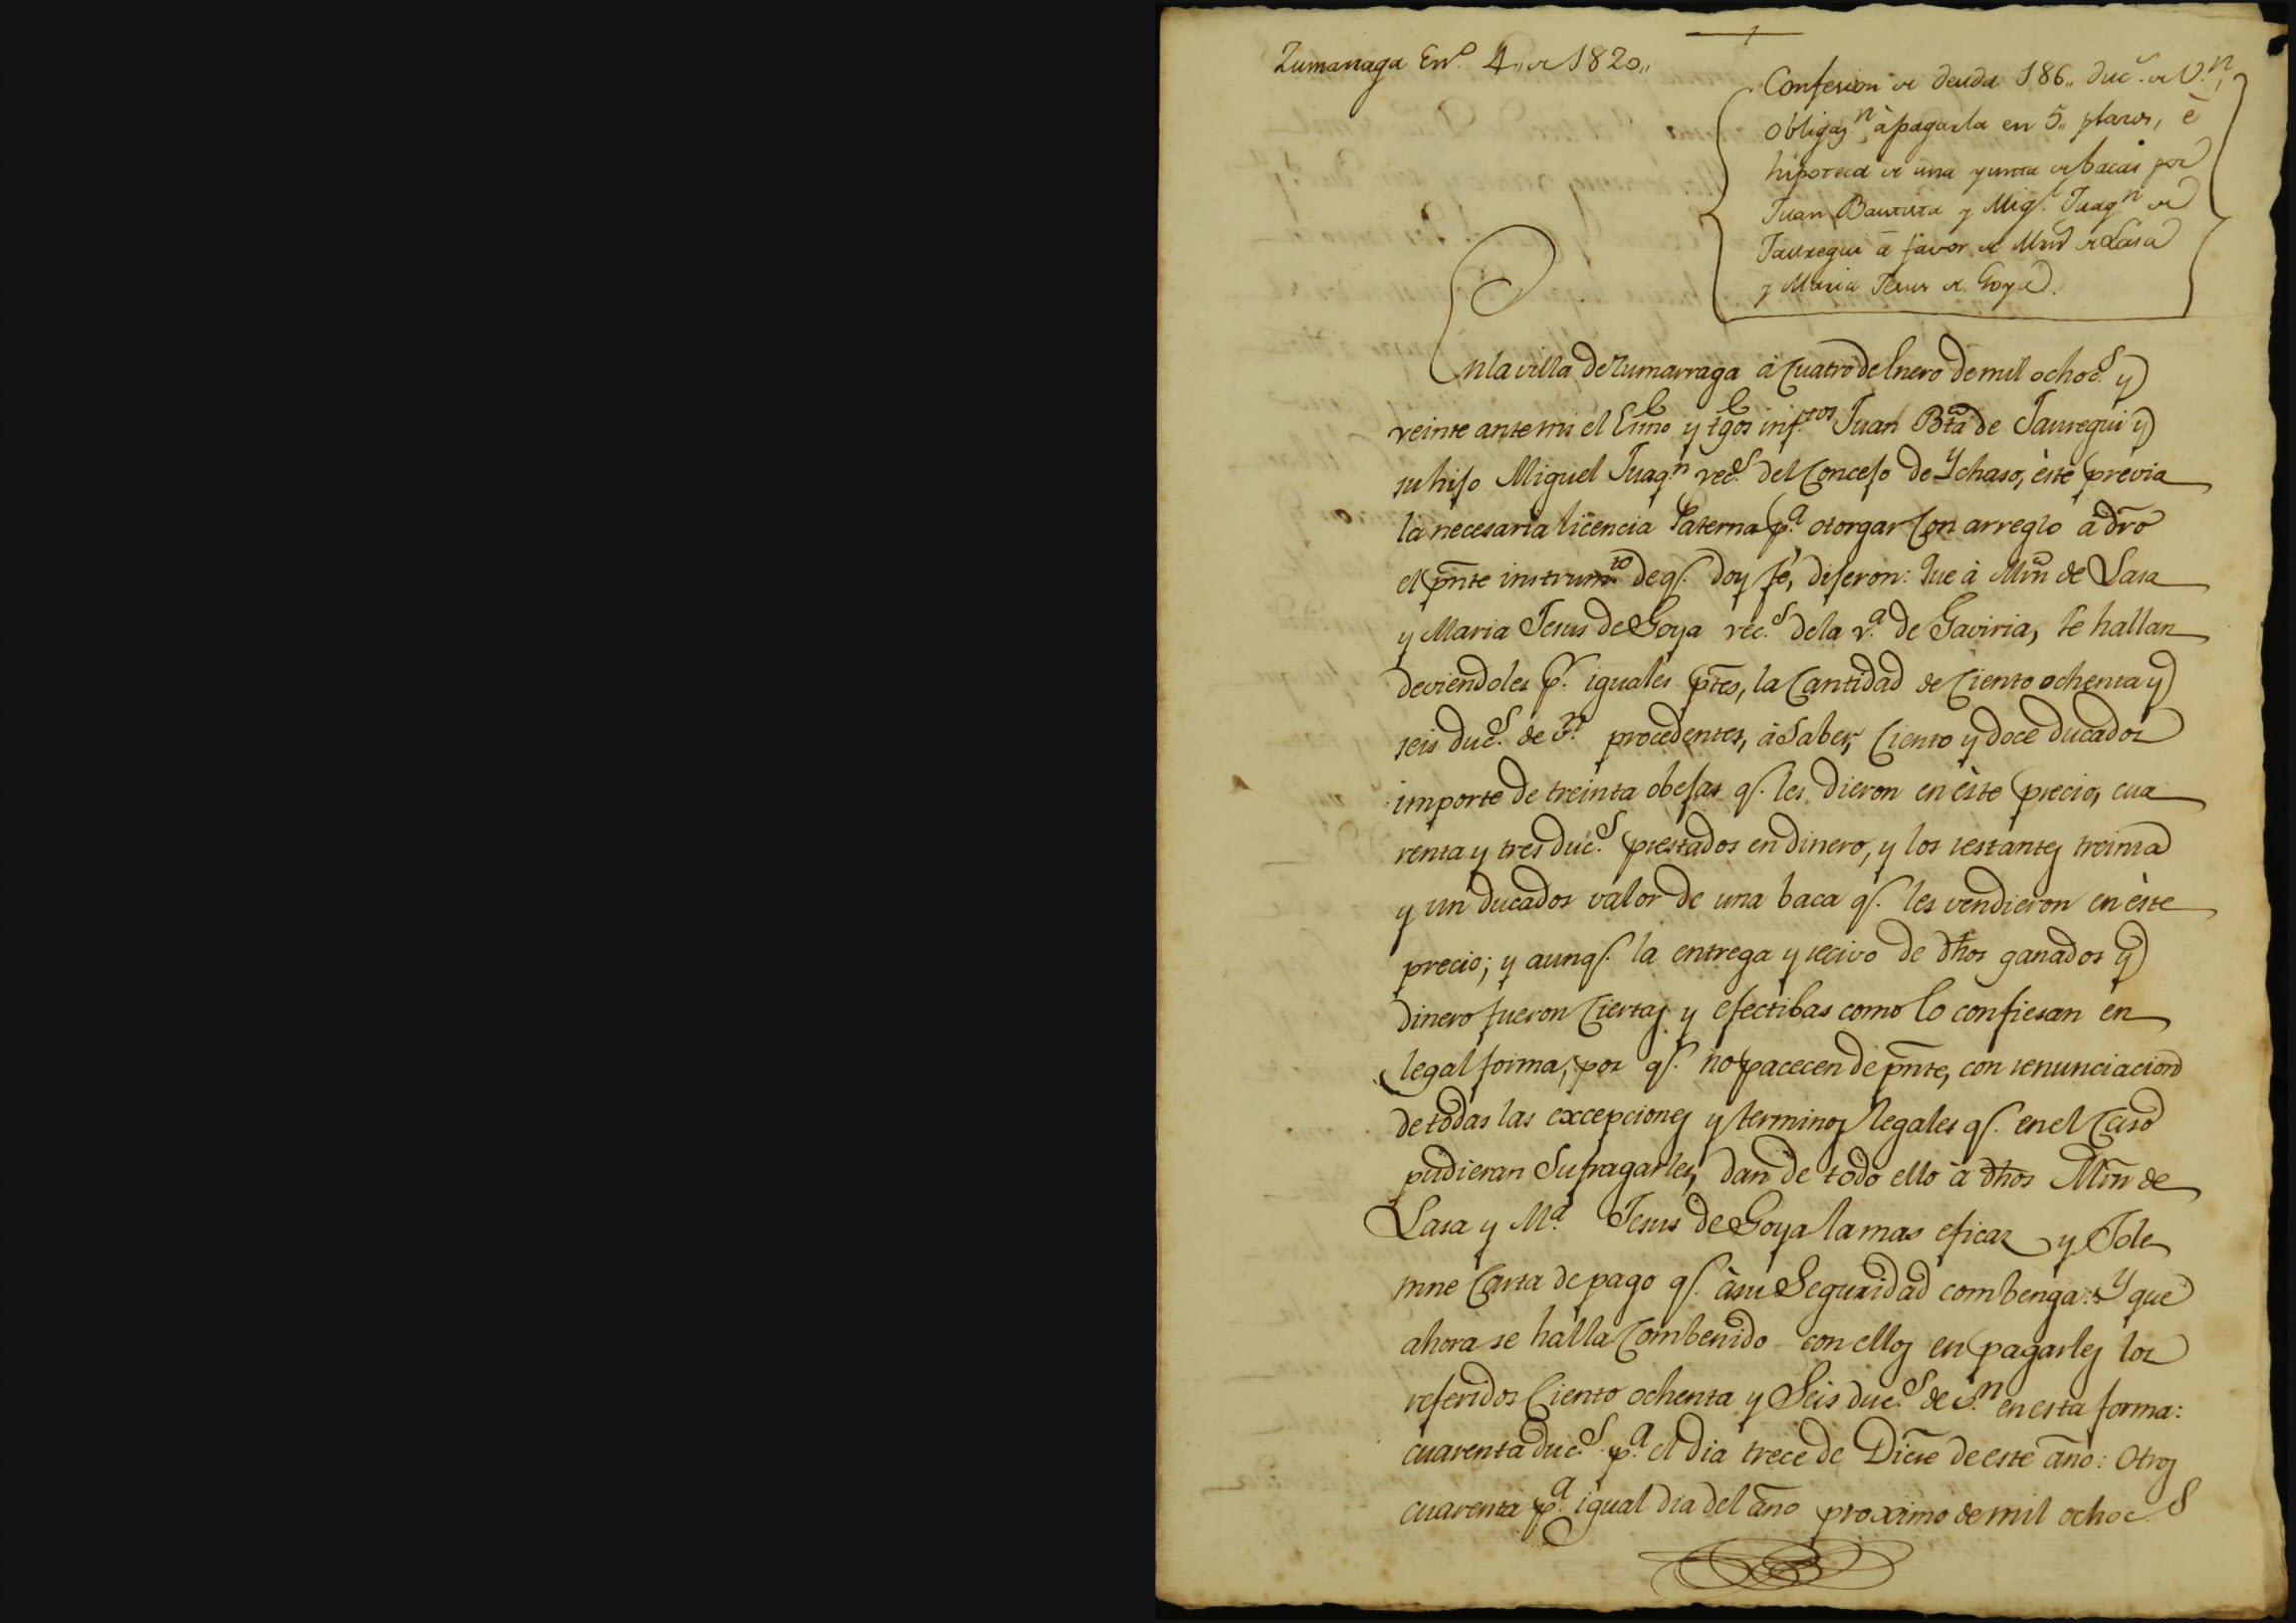 1
Zumarraga En.º 4,, de 1820,,
Confesion de deuda 186,, duc.s de V.n,
obligaz.n à pagarla en 5,, plazos, è
hipoteca de una yunta de bacas por
Juan Bautista y Mig.l Juaq.n de
Jauregui à favor de Mrn de Lasa
y Maria Jesus de Goya.
En la villa de Zumarraga à Cuatro de Enero de mil ochoc.s y
veinte ante mi el Esno y tgos inf.tos Juan Bta de Jauregui y
su hijo Miguel Juaq.n vec.s del Concejo de Ychaso, èste previa
la necesaria licencia Paterna p.a otorgar Con arreglo à dro
el pnte instrum.to de q.e doy fé, dijeron: Que à Mrn de Lasa
y Maria Jesus de Goya vec.s de la v.a de Gaviria, se hallan
deviendoles p.r iguales ptes, la Cantidad de Ciento ochenta y
seis duc.s de v.n procedentes, à Saber, Ciento y doce ducados
importe de treinta obejas q.e les dieron en èste precio, cua
renta y tres duc.s prestados en dinero, y los restantes treinta
y un ducados valor de una baca q.e les vendieron en èste
precio; y aunq.e la entrega y recivo de dhos ganados y
dinero fueron Ciertas y efectibas como lo confiesan en
legal forma, por q.e no pacecen de pnte, con renunciacion
de todas las excepciones y terminos legales q.e en el Caso
pudieran Sufragarles, dan de todo ello à dhos Mrn de
Lasa y M.a Jesus de Goya la mas eficaz y Sole
mne Carta de pago q.e à su Seguridad combenga: Y que
ahora se halla Combenido con ellos en pagarles los
referidos Ciento ochenta y Seis duc.s de v.n en esta forma:
cuarenta duc.s p.a el dia trece de Dicre de este año: Otros
cuarenta p.a igual dia del año proximo de mil ochoc.s